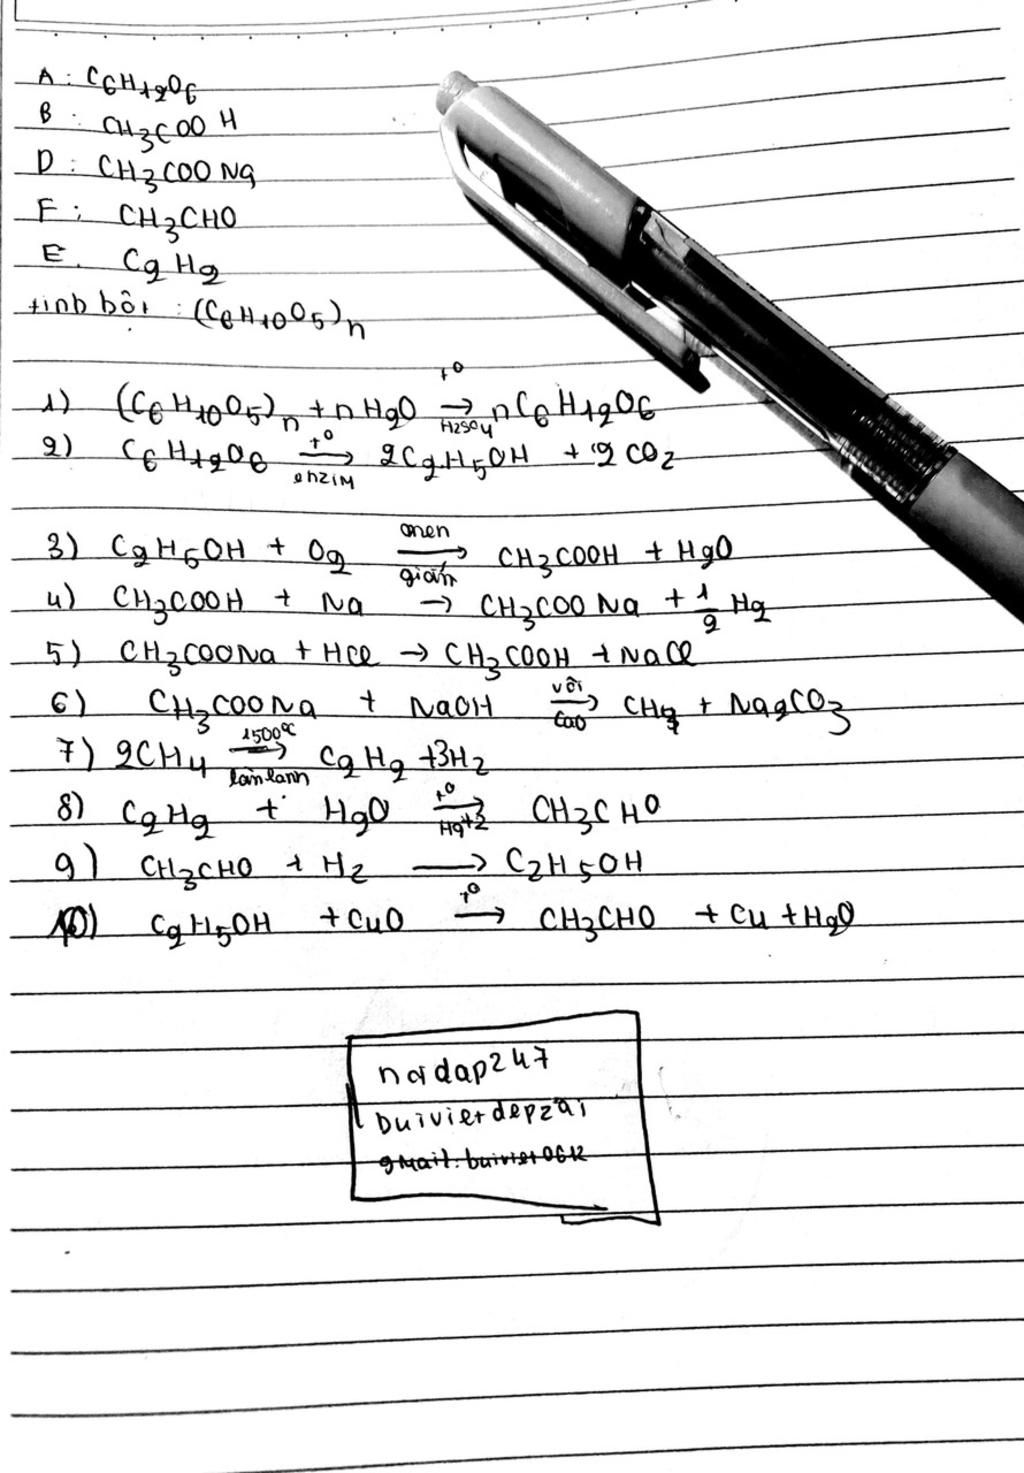 A : C6H12O6
B : CH3COOH
D : CH3COONa
F : CH3CHO
E. C2H2
tinh bột : (C6H10O5)n
1) (C6H10O5)n + nH2O →(t°, H2SO4) nC6H12O6
2) C6H12O6 →(t°, enzim) 2C2H5OH + 2CO2
3) C2H5OH + O2 →(men giấm) CH3COOH + H2O
4) CH3COOH + Na → CH3COONa + 1/2 H2
5) CH3COONa + HCl → CH3COOH + NaCl
6) CH3COONa + NaOH →(vôi, CaO) CH4 + Na2CO3
7) 2CH4 →(1500°C, làm lạnh) C2H2 + 3H2
8) C2H2 + H2O →(t°, Hg+2) CH3CHO
9) CH3CHO + H2 → C2H5OH
10) C2H5OH + CuO →(t°) CH3CHO + Cu + H2O
hoidap247
buivietdepzai
gmail: buiviet0612